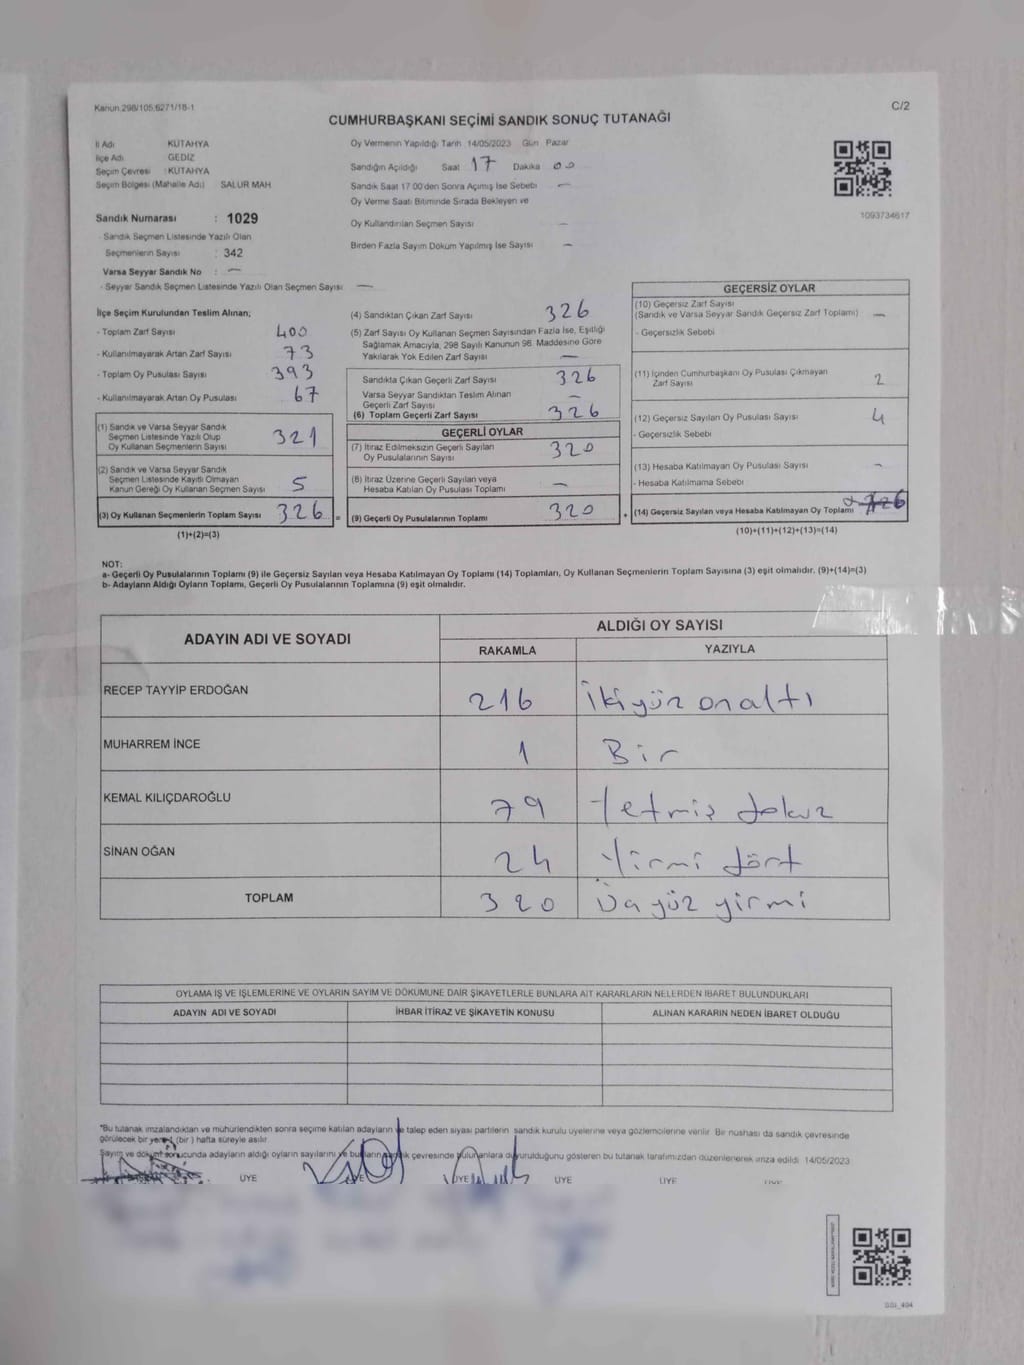 Kanun 298/105,6271/18-1
C/2
CUMHURBAŞKANI SEÇİMİ SANDIK SONUÇ TUTANAĞI
İl Adı KÜTAHYA
İlçe Adı GEDİZ
Seçim Çevresi : KÜTAHYA
Seçim Bölgesi (Mahalle Adı) SALUR MAH.
Sandık Numarası : 1029
- Sandık Seçmen Listesinde Yazılı Olan
Seçmenlerin Sayısı : 342
Varsa Seyyar Sandık No : —
- Seyyar Sandık Seçmen Listesinde Yazılı Olan Seçmen Sayısı : —
Oy Vermenin Yapıldığı Tarih 14/05/2023 Gün Pazar
Sandığın Açıldığı Saat 17 Dakika 00
Sandık Saat 17:00'den Sonra Açılmış İse Sebebi —
Oy Verme Saati Bitiminde Sırada Bekleyen ve
Oy Kullandırılan Seçmen Sayısı —
Birden Fazla Sayım Döküm Yapılmış İse Sayısı —
1093734617
İlçe Seçim Kurulundan Teslim Alınan;
- Toplam Zarf Sayısı 400
- Kullanılmayarak Artan Zarf Sayısı 73
- Toplam Oy Pusulası Sayısı 393
- Kullanılmayarak Artan Oy Pusulası 67
(1) Sandık ve Varsa Seyyar Sandık
Seçmen Listesinde Yazılı Olup
Oy Kullanan Seçmenlerin Sayısı 321
(2) Sandık ve Varsa Seyyar Sandık
Seçmen Listesinde Kayıtlı Olmayan
Kanun Gereği Oy Kullanan Seçmen Sayısı 5
(3) Oy Kullanan Seçmenlerin Toplam Sayısı 326
(1)+(2)=(3)
(4) Sandıktan Çıkan Zarf Sayısı 326
(5) Zarf Sayısı Oy Kullanan Seçmen Sayısından Fazla İse, Eşitliği
Sağlamak Amacıyla, 298 Sayılı Kanunun 98. Maddesine Göre
Yakılarak Yok Edilen Zarf Sayısı —
Sandıkta Çıkan Geçerli Zarf Sayısı 326
Varsa Seyyar Sandıktan Teslim Alınan
Geçerli Zarf Sayısı —
(6) Toplam Geçerli Zarf Sayısı 326
GEÇERLİ OYLAR
(7) İtiraz Edilmeksizin Geçerli Sayılan
Oy Pusulalarının Sayısı 320
(8) İtiraz Üzerine Geçerli Sayılan veya
Hesaba Katılan Oy Pusulası Toplamı —
= (9) Geçerli Oy Pusulalarının Toplamı 320
GEÇERSİZ OYLAR
(10) Geçersiz Zarf Sayısı
(Sandık ve Varsa Seyyar Sandık Geçersiz Zarf Toplamı) —
- Geçersizlik Sebebi
(11) İçinden Cumhurbaşkanı Oy Pusulası Çıkmayan
Zarf Sayısı 2
(12) Geçersiz Sayılan Oy Pusulası Sayısı 4
- Geçersizlik Sebebi
(13) Hesaba Katılmayan Oy Pusulası Sayısı —
- Hesaba Katılmama Sebebi
+ (14) Geçersiz Sayılan veya Hesaba Katılmayan Oy Toplamı
(10)+(11)+(12)+(13)=(14)
NOT:
a- Geçerli Oy Pusulalarının Toplamı (9) ile Geçersiz Sayılan veya Hesaba Katılmayan Oy Toplamı (14) Toplamları, Oy Kullanan Seçmenlerin Toplam Sayısına (3) eşit olmalıdır. (9)+(14)=(3)
b- Adayların Aldığı Oyların Toplamı, Geçerli Oy Pusulalarının Toplamına (9) eşit olmalıdır.
ADAYIN ADI VE SOYADI
ALDIĞI OY SAYISI
RAKAMLA YAZIYLA
RECEP TAYYİP ERDOĞAN 216 İkiyüz onaltı
MUHARREM İNCE 1 Bir
KEMAL KILIÇDAROĞLU 79 Yetmiş dokuz
SİNAN OĞAN 24 Yirmi dört
TOPLAM 320 Üçyüz yirmi
OYLAMA İŞ VE İŞLEMLERİNE VE OYLARIN SAYIM VE DÖKÜMÜNE DAİR ŞİKAYETLERLE BUNLARA AİT KARARLARIN NELERDEN İBARET BULUNDUKLARI
ADAYIN ADI VE SOYADI İHBAR İTİRAZ VE ŞİKAYETİN KONUSU ALINAN KARARIN NEDEN İBARET OLDUĞU
*Bu tutanak imzalandıktan ve mühürlendikten sonra seçime katılan adayların ve talep eden siyasi partilerin sandık kurulu üyelerine veya gözlemcilerine verilir. Bir nüshası da sandık çevresinde
görülecek bir yere (bir) hafta süreyle asılır.
Sayım ve döküm sonucunda adayların aldığı oyların sayılarını ve bunların sandık çevresinde bulunanlara duyurulduğunu gösteren bu tutanak tarafımızdan düzenlenerek imza edildi. 14/05/2023
ÜYE ÜYE ÜYE ÜYE